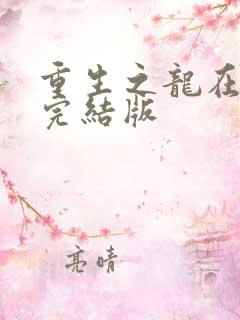 重生之龍在
完結版
亮晴